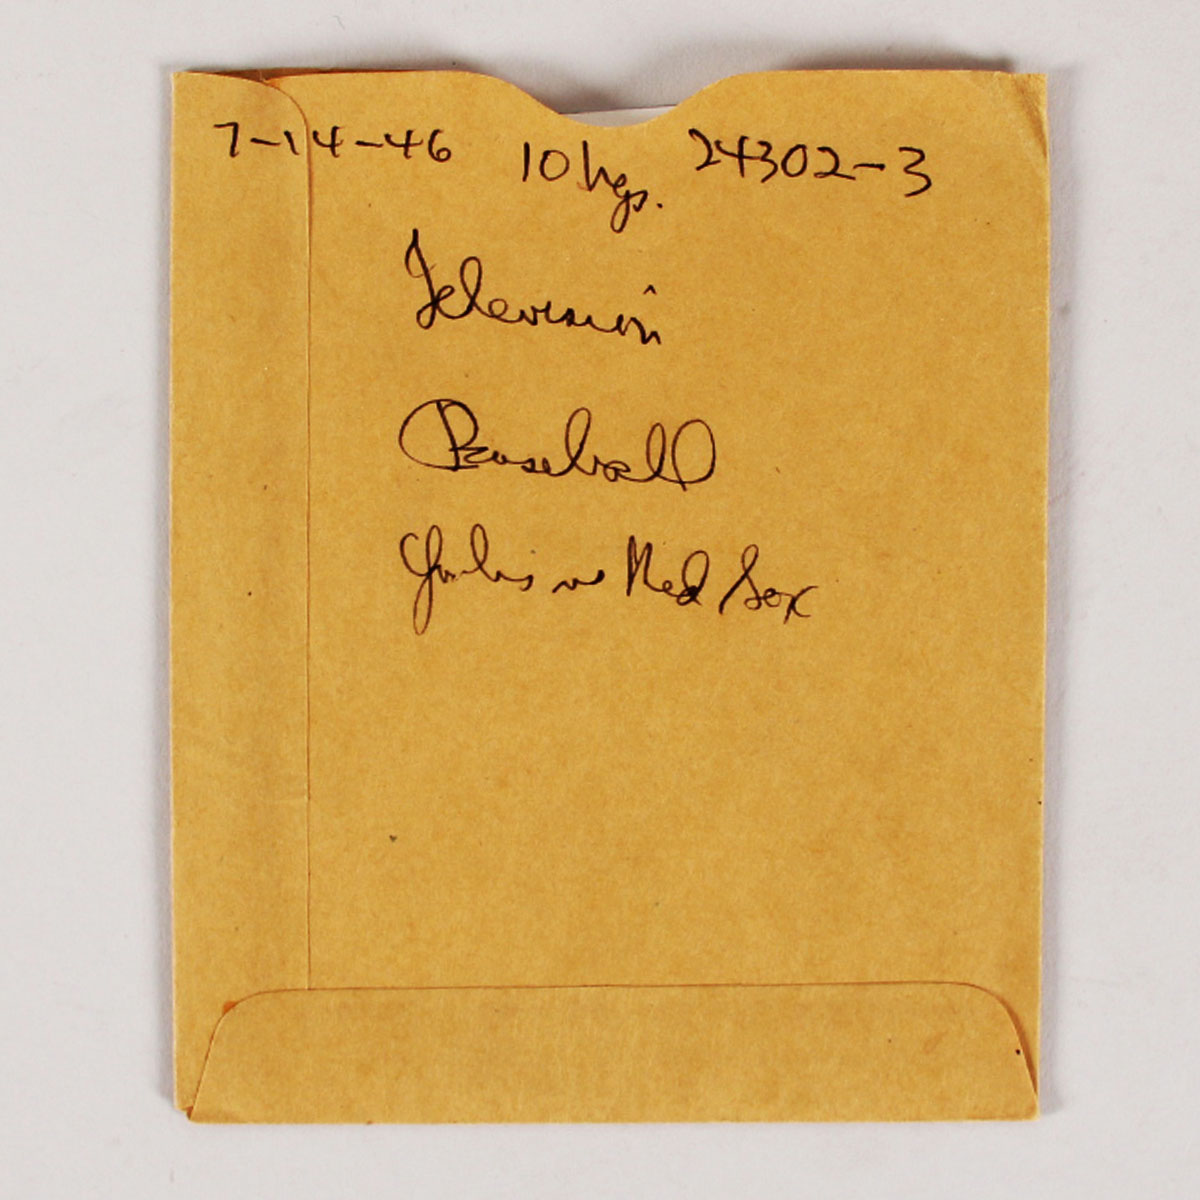 7-14-46 10 hgs. 24302-3
Television
Baseball
Yankees vs Red Sox